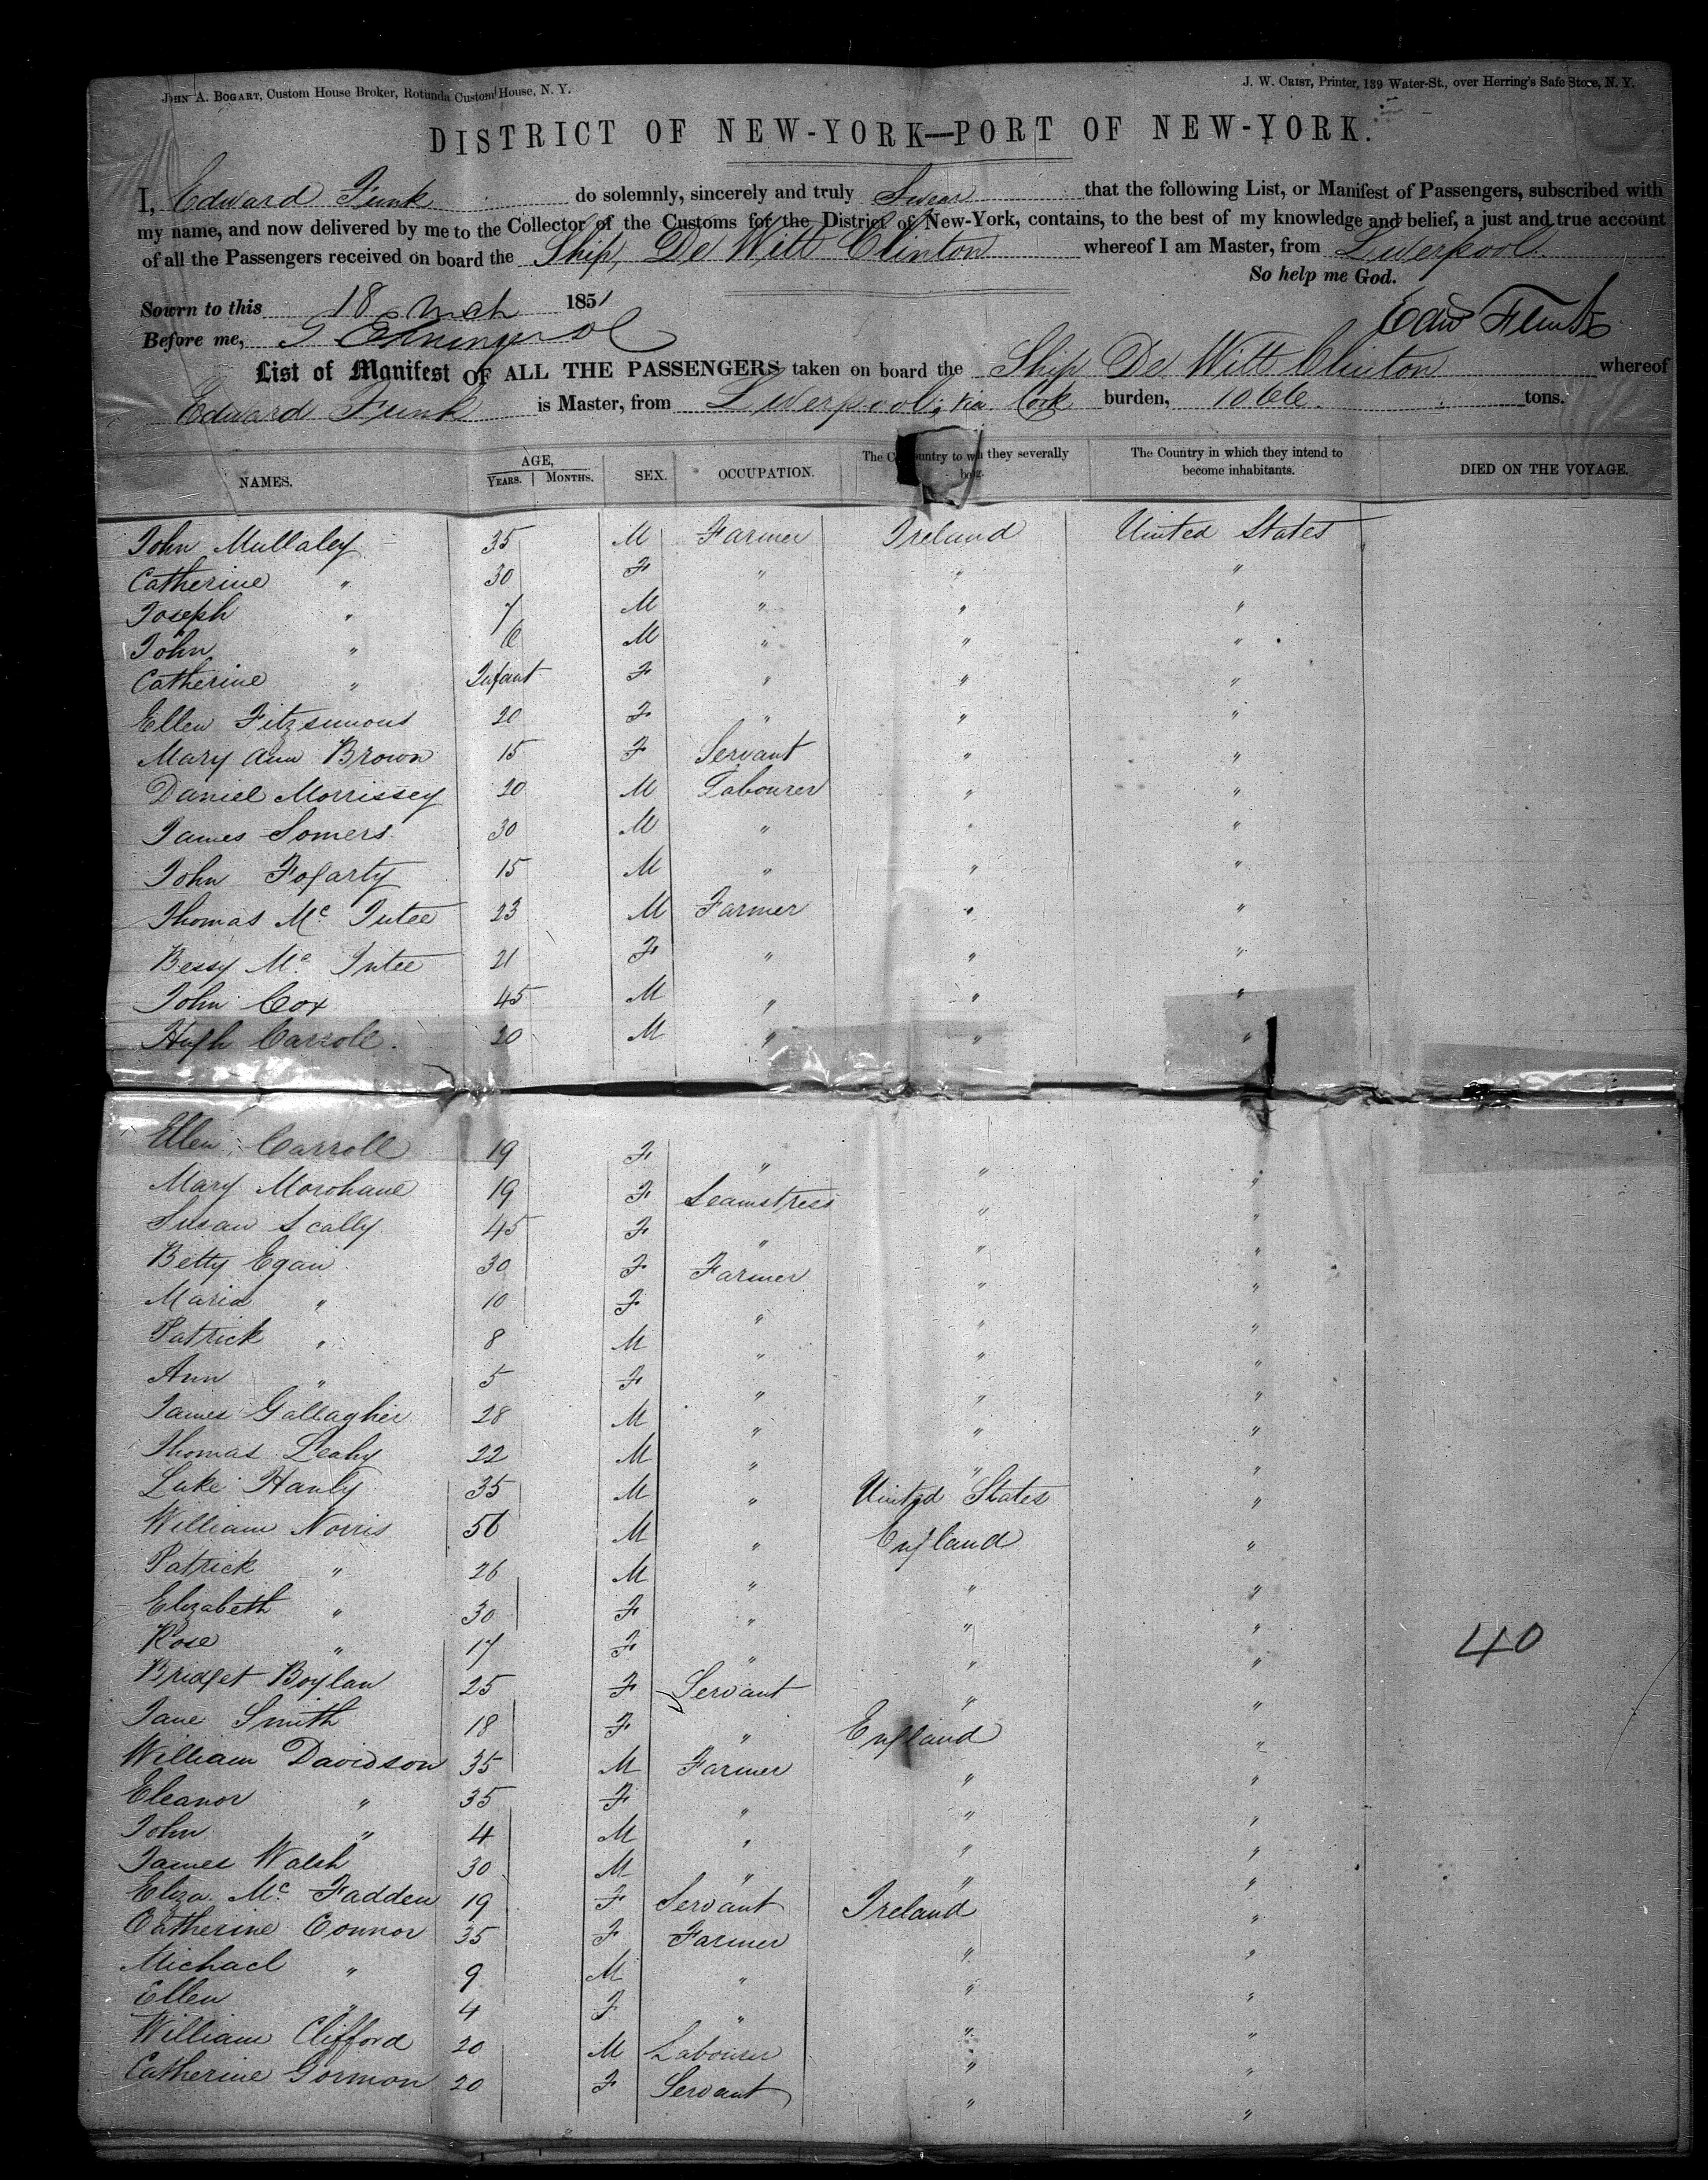 JOHN A. BOGART, Custom House Broker, Rotunda Custom House, N. Y.
J. W. CRIST, Printer, 139 Water-St., over Herring's Safe Store, N. Y.
DISTRICT OF NEW-YORK—PORT OF NEW-YORK.
I, Edward Funk do solemnly, sincerely and truly Swear that the following List, or Manifest of Passengers, subscribed with
my name, and now delivered by me to the Collector of the Customs for the District of New-York, contains, to the best of my knowledge and belief, a just and true account
of all the Passengers received on board the Ship, De Witt Clinton whereof I am Master, from Liverpool.
So help me God.
Sowrn to this 18 Mch 1851
Edw
Before me,
List of Manifest OF ALL THE PASSENGERS taken on board the Ship De Witt Clinton whereof
Edward Funk is Master, from Liverpool; via Cork burden, 1066. tons.
NAMES. AGE, YEARS. MONTHS. SEX. OCCUPATION. The Country to they severally The Country in which they intend to become inhabitants. DIED ON THE VOYAGE.
John Mullaley 35 M Farmer Ireland United States
Catherine " 30 F " " "
Joseph " 7 M " " "
John " 6 M " " "
Catherine " Infant F " " "
Ellen Fitzsimons 20 F " " "
Mary Ann Brown 15 F Servant " "
Daniel Morrissey 20 M Labourer " "
James Somers 30 M " " "
John Fogarty 15 M " " "
Thomas Mc Intee 23 M Farmer " "
Bessy Mc Intee 21 F " " "
John Cox 45 M " " "
Hugh Carroll. 20 M " " "
Ellen Carroll 19 F " " "
Mary Morohane 19 F Seamstress " "
Susan Scally 45 F " " "
Betty Egan 30 F Farmer " "
Maria " 10 F " " "
Patrick " 8 M " " "
Ann " 5 F " " "
James Gallagher 28 M " " "
Thomas Leahy 22 M " " "
Luke Hanly 35 M " United States "
William Norris 56 M " England "
Patrick " 26 M " " "
Elizabeth " 30 F " " "
Rose " 17 F " " "
40
Bridget Boylan 25 F Servant " "
Jane Smith 18 F " England "
William Davidson 35 M Farmer " "
Eleanor " 35 F " " "
John " 4 M " " "
James Walsh 30 M " " "
Eliza Mc Fadden 19 F Servant Ireland "
Catherine Connor 35 F Farmer " "
Michael " 9 M " " "
Ellen " 4 F " " "
William Clifford 20 M Labourer " "
Catherine Gormon 20 F Servant " "